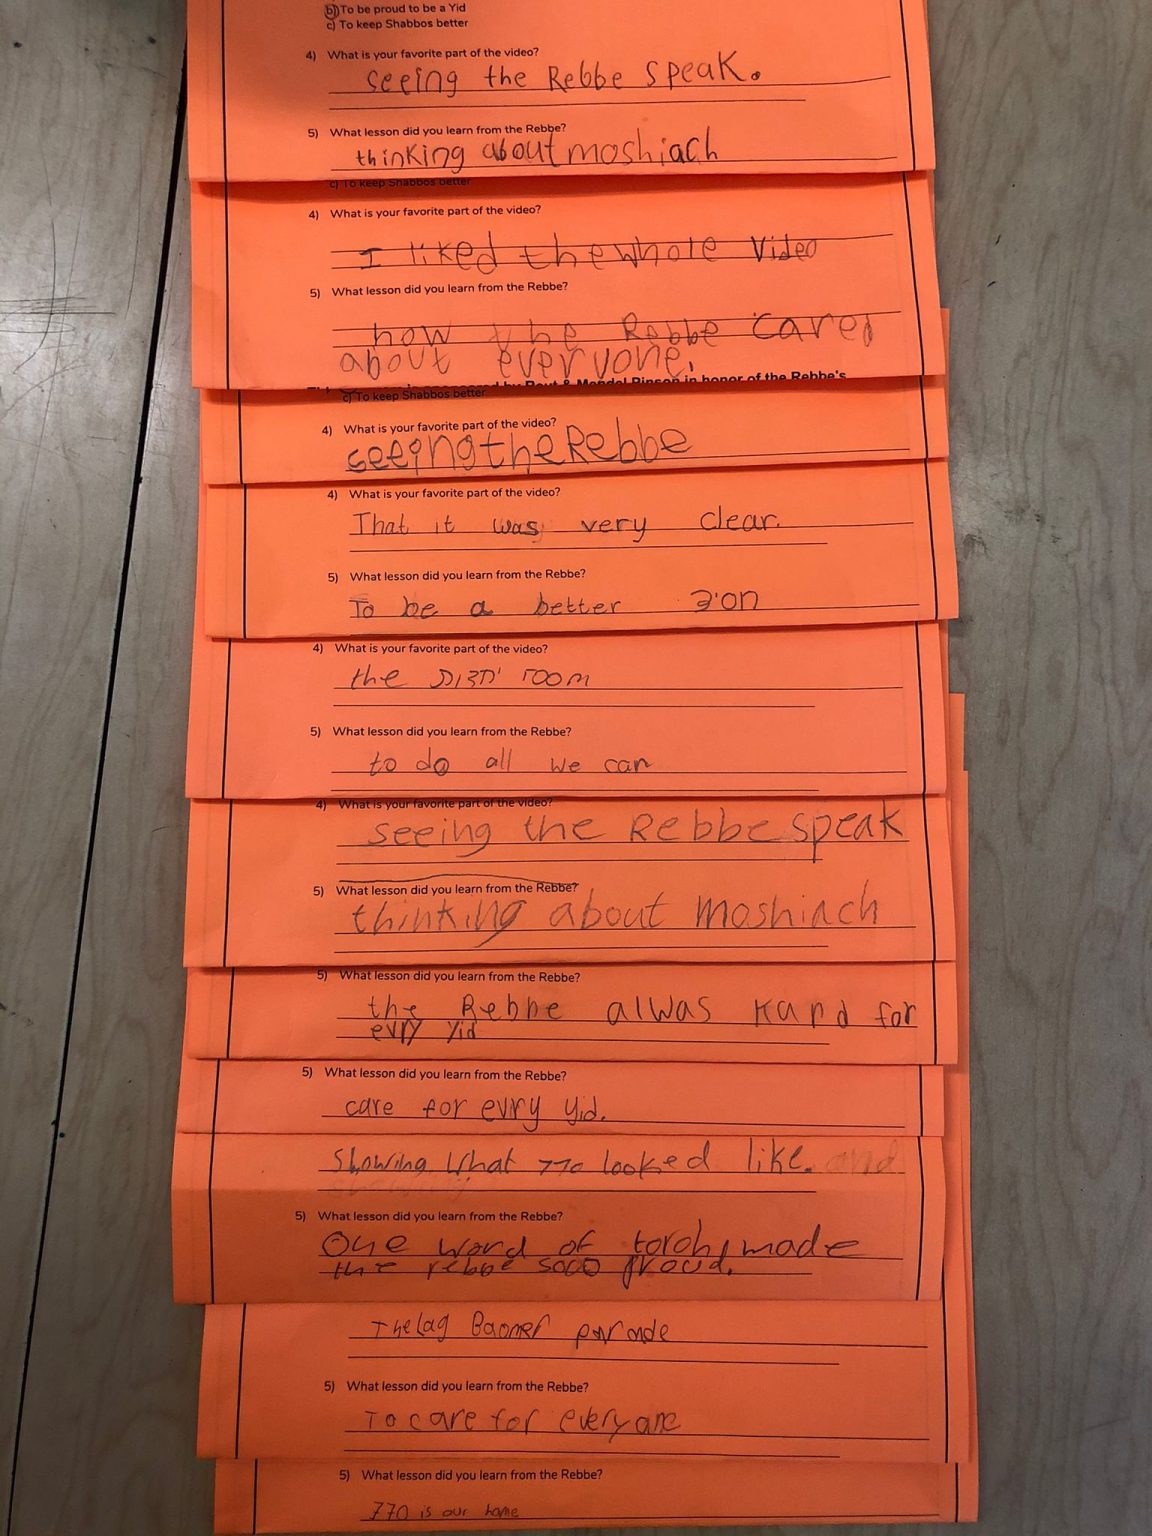 b) To be proud to be a Yid
c) To keep Shabbos better
4) What is your favorite part of the video?
seeing the Rebbe speak.
5) What lesson did you learn from the Rebbe?
thinking about moshiach
c) To keep Shabbos better
4) What is your favorite part of the video?
I liked the whole video
5) What lesson did you learn from the Rebbe?
how the Rebbe cared
about everyone.
& Mendel Pinson in honor of the Rebbe's
c) To keep Shabbos better
4) What is your favorite part of the video?
seeing the Rebbe
4) What is your favorite part of the video?
That it was very clear.
5) What lesson did you learn from the Rebbe?
To be a better
4) What is your favorite part of the video?
the room
5) What lesson did you learn from the Rebbe?
to do all we can
4) What is your favorite part of the video?
seeing the Rebbe speak
5) What lesson did you learn from the Rebbe?
thinking about moshiach
5) What lesson did you learn from the Rebbe?
the Rebbe alwas kard for
evry yid
5) What lesson did you learn from the Rebbe?
care for evry yid.
showing what 770 looked like. and
5) What lesson did you learn from the Rebbe?
One word of torah, made
the rebbe sooo proud.
The lag Baomer parade
5) What lesson did you learn from the Rebbe?
To care for everyone
5) What lesson did you learn from the Rebbe?
770 is our home